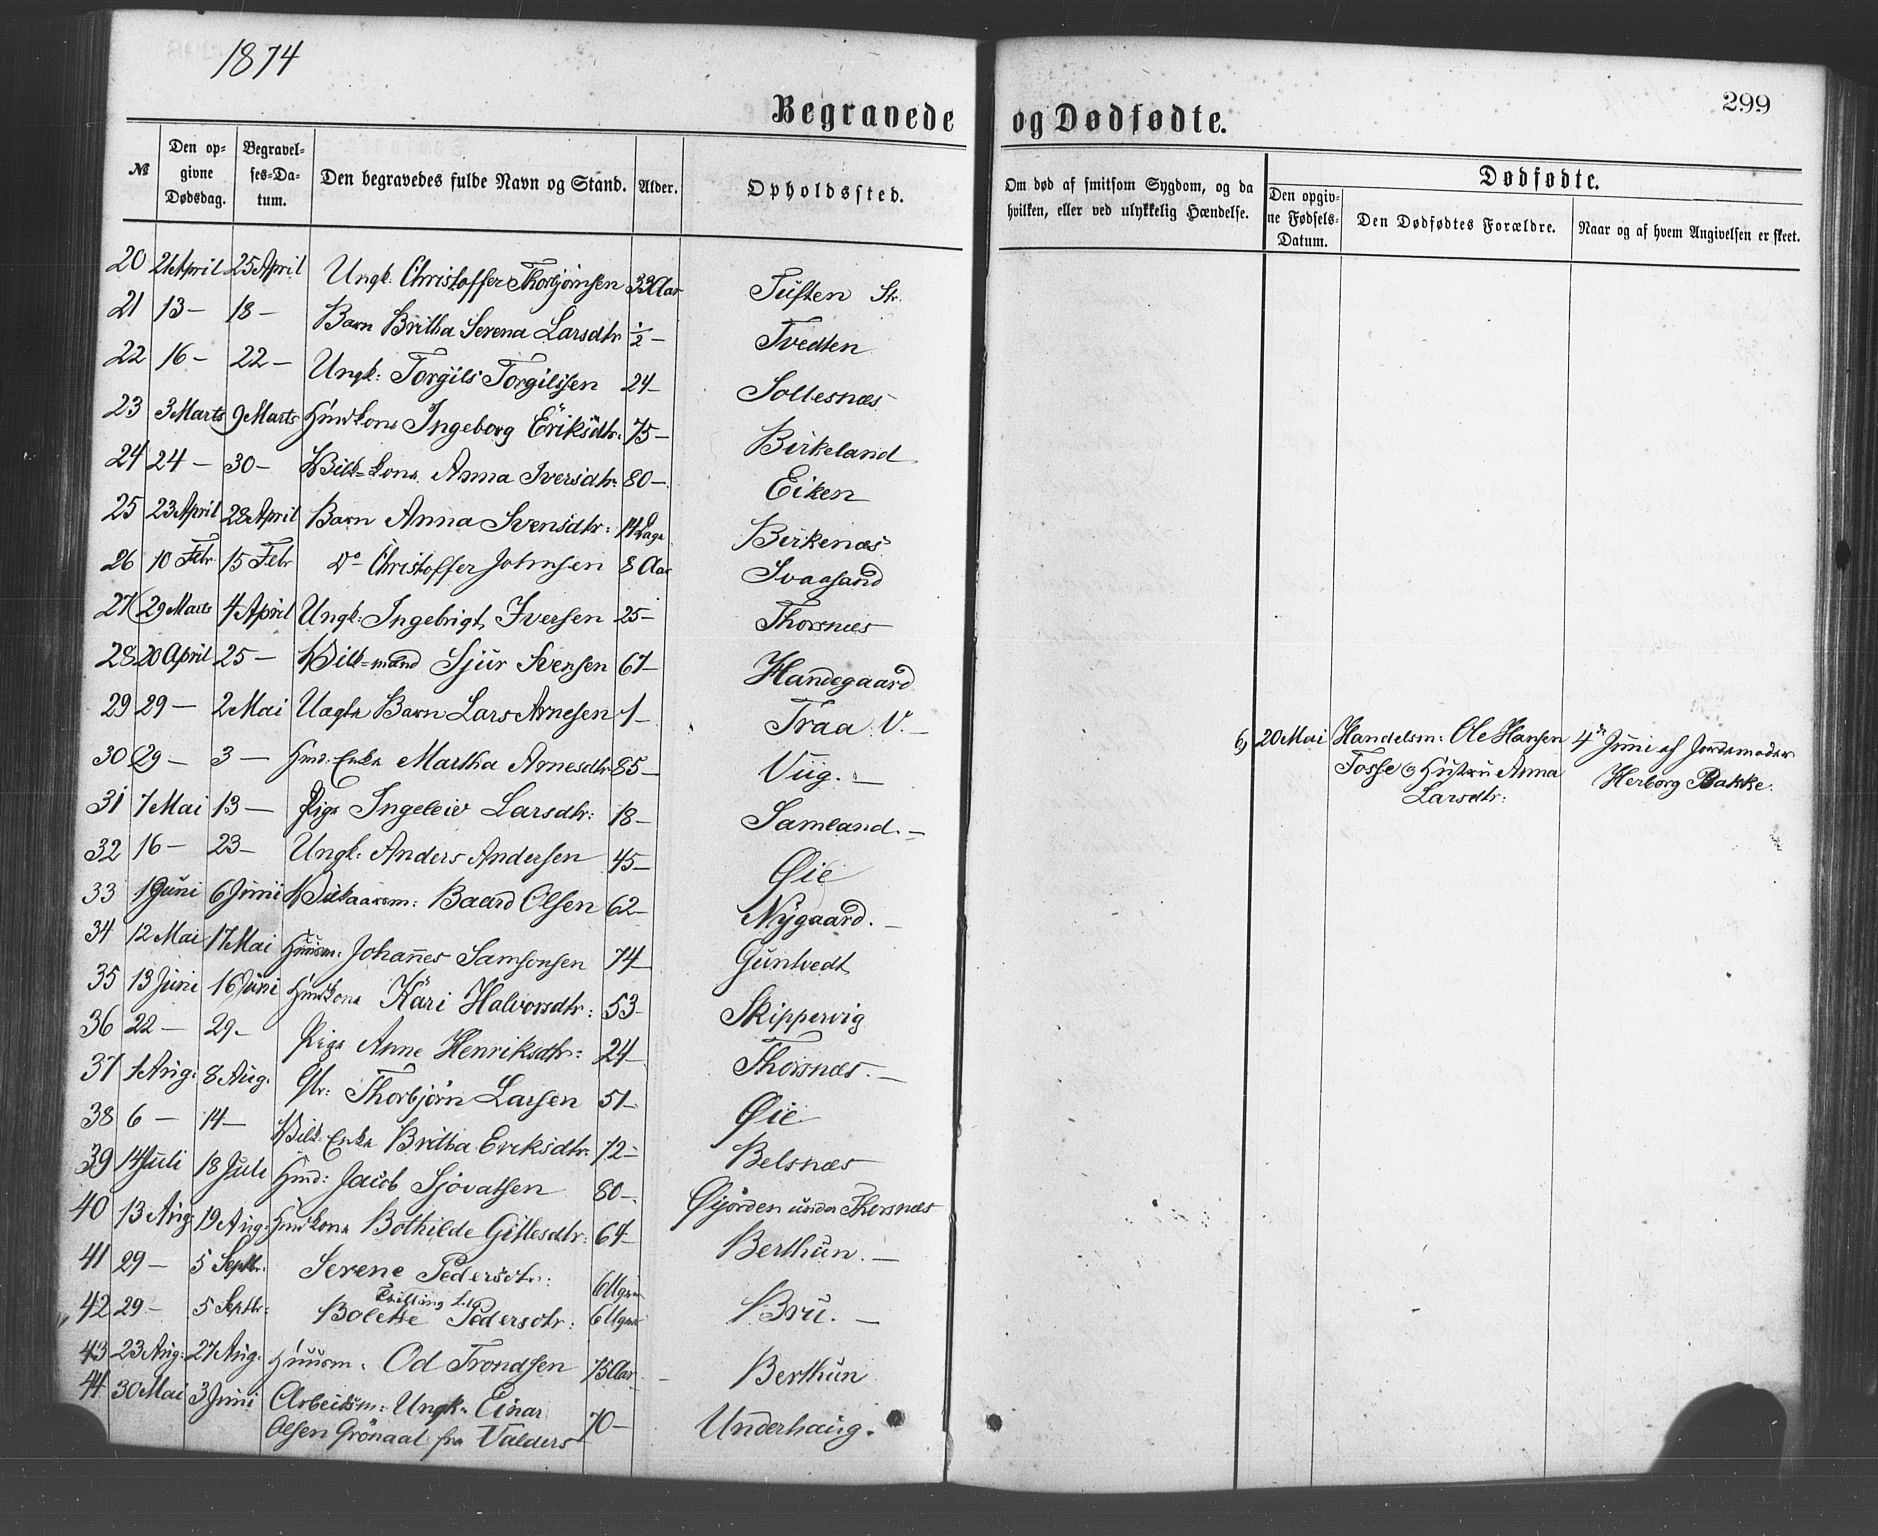 1874
299
Begravede og Dødfødte.
№ | Den opgivne Dødsdag. | Begravelses-Datum. | Den begravedes fulde Navn og Stand. | Alder. | Opholdssted. | Om død af smitsom Sygdom, og da hvilken, eller ved ulykkelig Hændelse. | Dødfødte. Den opgivne Fødsels-Datum. | Den Dødfødtes Forældre. | Naar og af hvem Angivelsen er skeet.
20 21 April 25 April Ungk. Christoffer Thorbjørnsen 33 Aar Tuften Str.
21 13 — 18 — Barn Britha Serena Larsdtr ½ — Tvedten
22 16 — 22 — Ungk: Torgils Torgilssen 24 — Sollesnæs
23 3 Marts 9 Marts Hmdkone Ingeborg Eriksdtr: 75 — Birkeland
24 24 — 30 — Vilk=kone Anna Iversdtr: 80 — Eiken
25 23 April 28 April Barn Anna Svensdtr: 14 Dage Birkenæs
26 10 Febr 15 Febr Do Christoffer Johnsen 8 Aar Svaasand
27 29 Marts 4 April Ungk: Ingebrigt Iversen 25 — Thorsnæs
28 20 April 25 — Vilk=mand Sjur Svensen 67 — Handegaard
29 29 — 2 Mai Uægte Barn Lars Arnesen 1 — Traa V. —
30 29 — 3 — Hmd: Enke Martha Arnesdtr 85 — Viig. —
31 7 Mai 13 — Pige Ingeleiv Larsdtr: 18 — Samland. —
32 16 — 23 — Ungk: Anders Andersen 45 — Øie
33 1 Juni 6 Juni Vilkaarsm: Baard Olsen 62 — Nygaard. —
34 12 Mai 17 Mai Huusm: Johannes Samsonsen 74 — Guntvedt
35 13 Juni 16 Juni Hmdkone Kari Halvorsdtr: 53 — Skippervig
36 22 — 29 — Pige Anne Henriksdtr: 24 — Thorsnæs. —
37 1 Aug: 8 Aug: Thorbjørn Larsen 51 — Øie
38 6 — 14 — Vilk: Enke Britha Eriksdtr: 72 — Belsnæs
39 14 Juli 18 Juli Hmd: Jacob Sjovatsen 80 — Øyjorden under Thorsnæs
40 13 Aug 19 Aug: Hmdkone Bothilde Gillesdtr: 64 — Berthun. —
41 29 — 5 Septbr: Serene Pedersdtr: 6 Ugur
Tvilling
42 29 — 5 Septbr: Bolette Pedersdtr: 6 Uger Bru. —
43 23 Aug: 27 Aug: Huusm: Od Trondsen 75 Aar Berthun
44 30 Mai 3 Juni Arbeidsm: Ungk: Einar
Olsen Grönaal fra Valders 70 — Underhaug.
6) 20 Mai Handelsm: Ole Hansen 4de Juni af Jordemoder
Tosse og Hustru Anna Herborg Bakke.
Larsdtr: